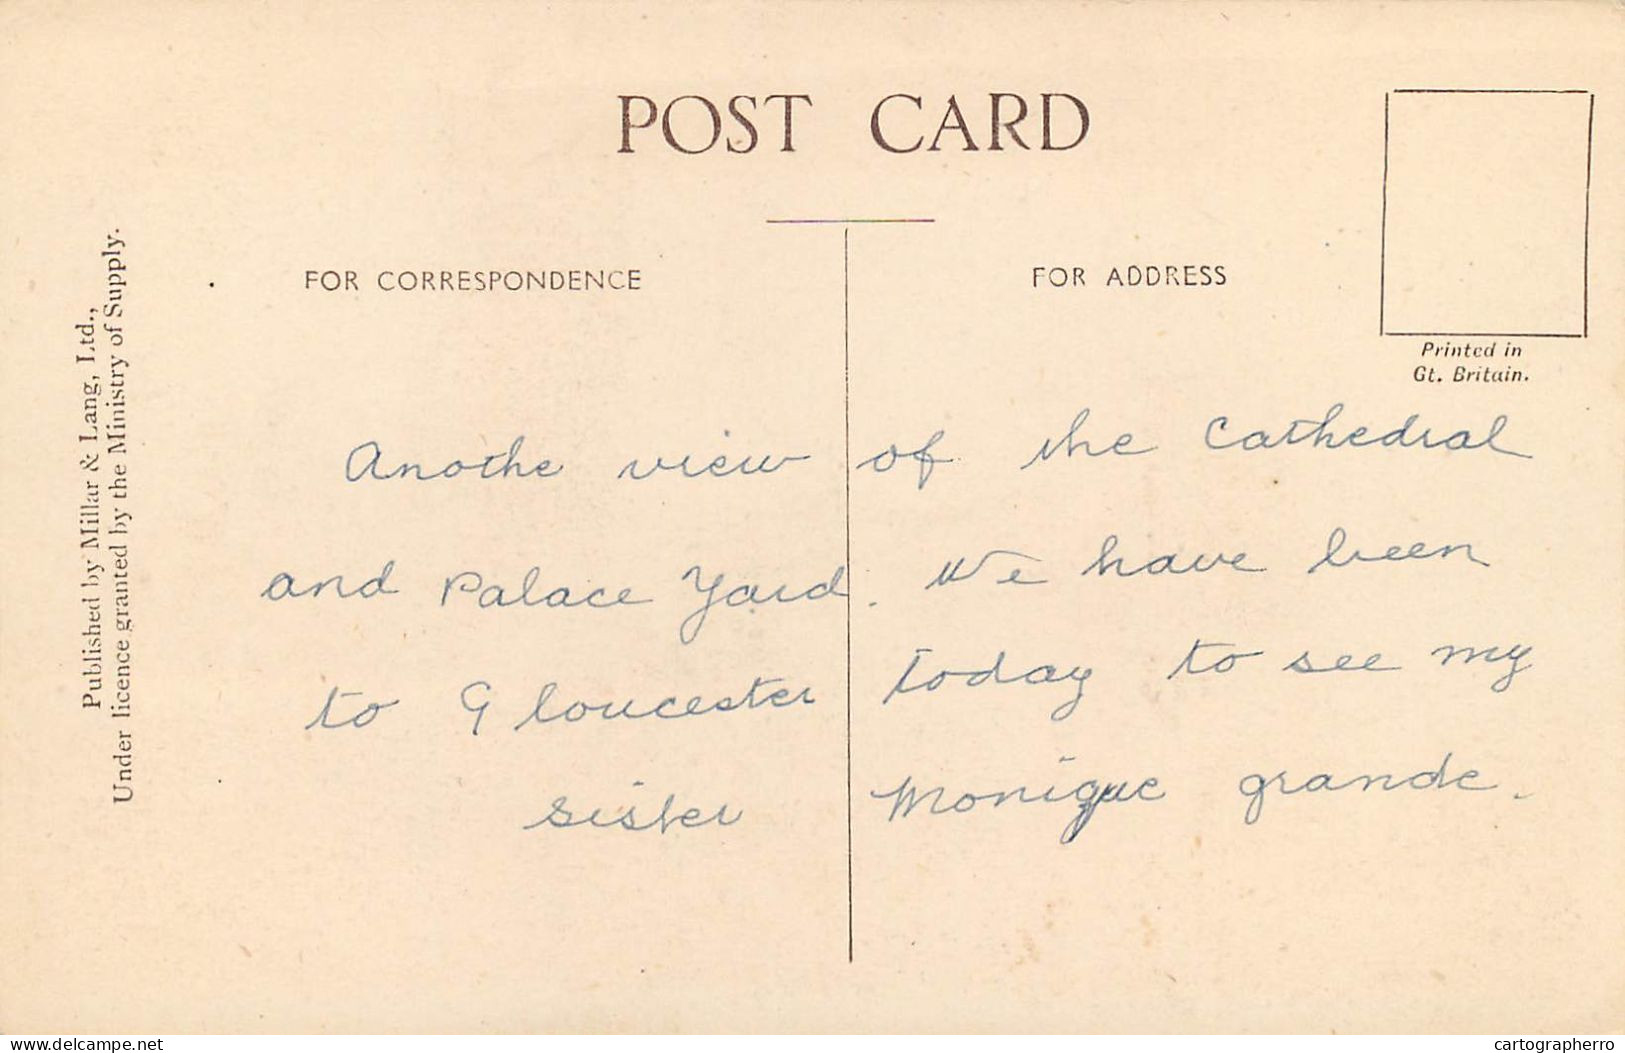 POST CARD
FOR CORRESPONDENCE
FOR ADDRESS
Printed in
Gt. Britain.
Published by Millar & Lang, Ltd.,
Under licence granted by the Ministry of Supply.
Anothe view of the Cathedral
and Palace Yard. We have been
to Gloucester today to see my
sister Monique grande.
delcampe.net
cartographerro